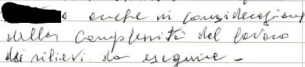 anche in considerazione
della complessità del lavoro
dei rilievi da eseguire -